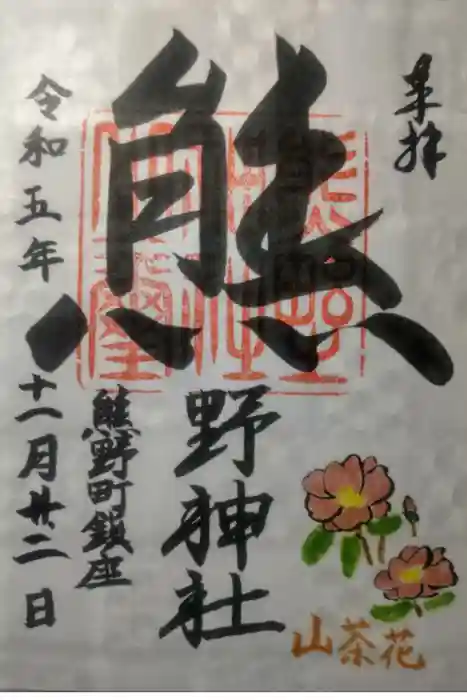 奉拝
熊野神社
山茶花
熊野町鎮座
令和五年十一月廿二日